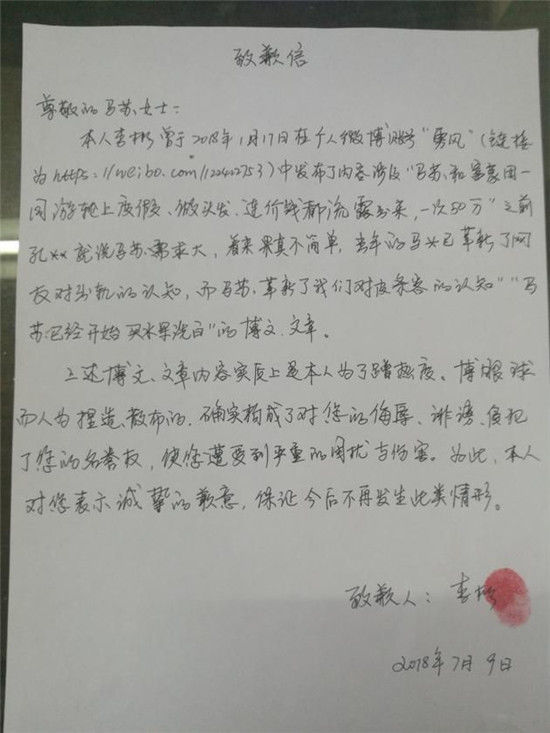 致歉信
尊敬的马苏女士：
本人李彬曾于2018年1月17日在个人微博账号"勇风"（链接
为https://weibo.com/122422753）中发布了内容涉及"马苏和
一同游轮上度假、做头发、连价钱都流露出来，一次50万""之前
孔**就说马苏需求大，看来果真不简单，去年的马*已革新了网
友对出轨的认知，而马苏革新了我们对皮条客的认知""马
苏已经开始买水果洗白"的博文、文章。
上述博文、文章内容实质上是本人为了蹭热度、博眼球
而人为捏造、散布的，确实构成了对您的侮辱、诽谤、侵犯
了您的名誉权，使您遭受到严重的困扰与伤害。为此，本人
对您表示诚挚的歉意，保证今后不再发生此类情形。
致歉人：李彬
2018年7月9日